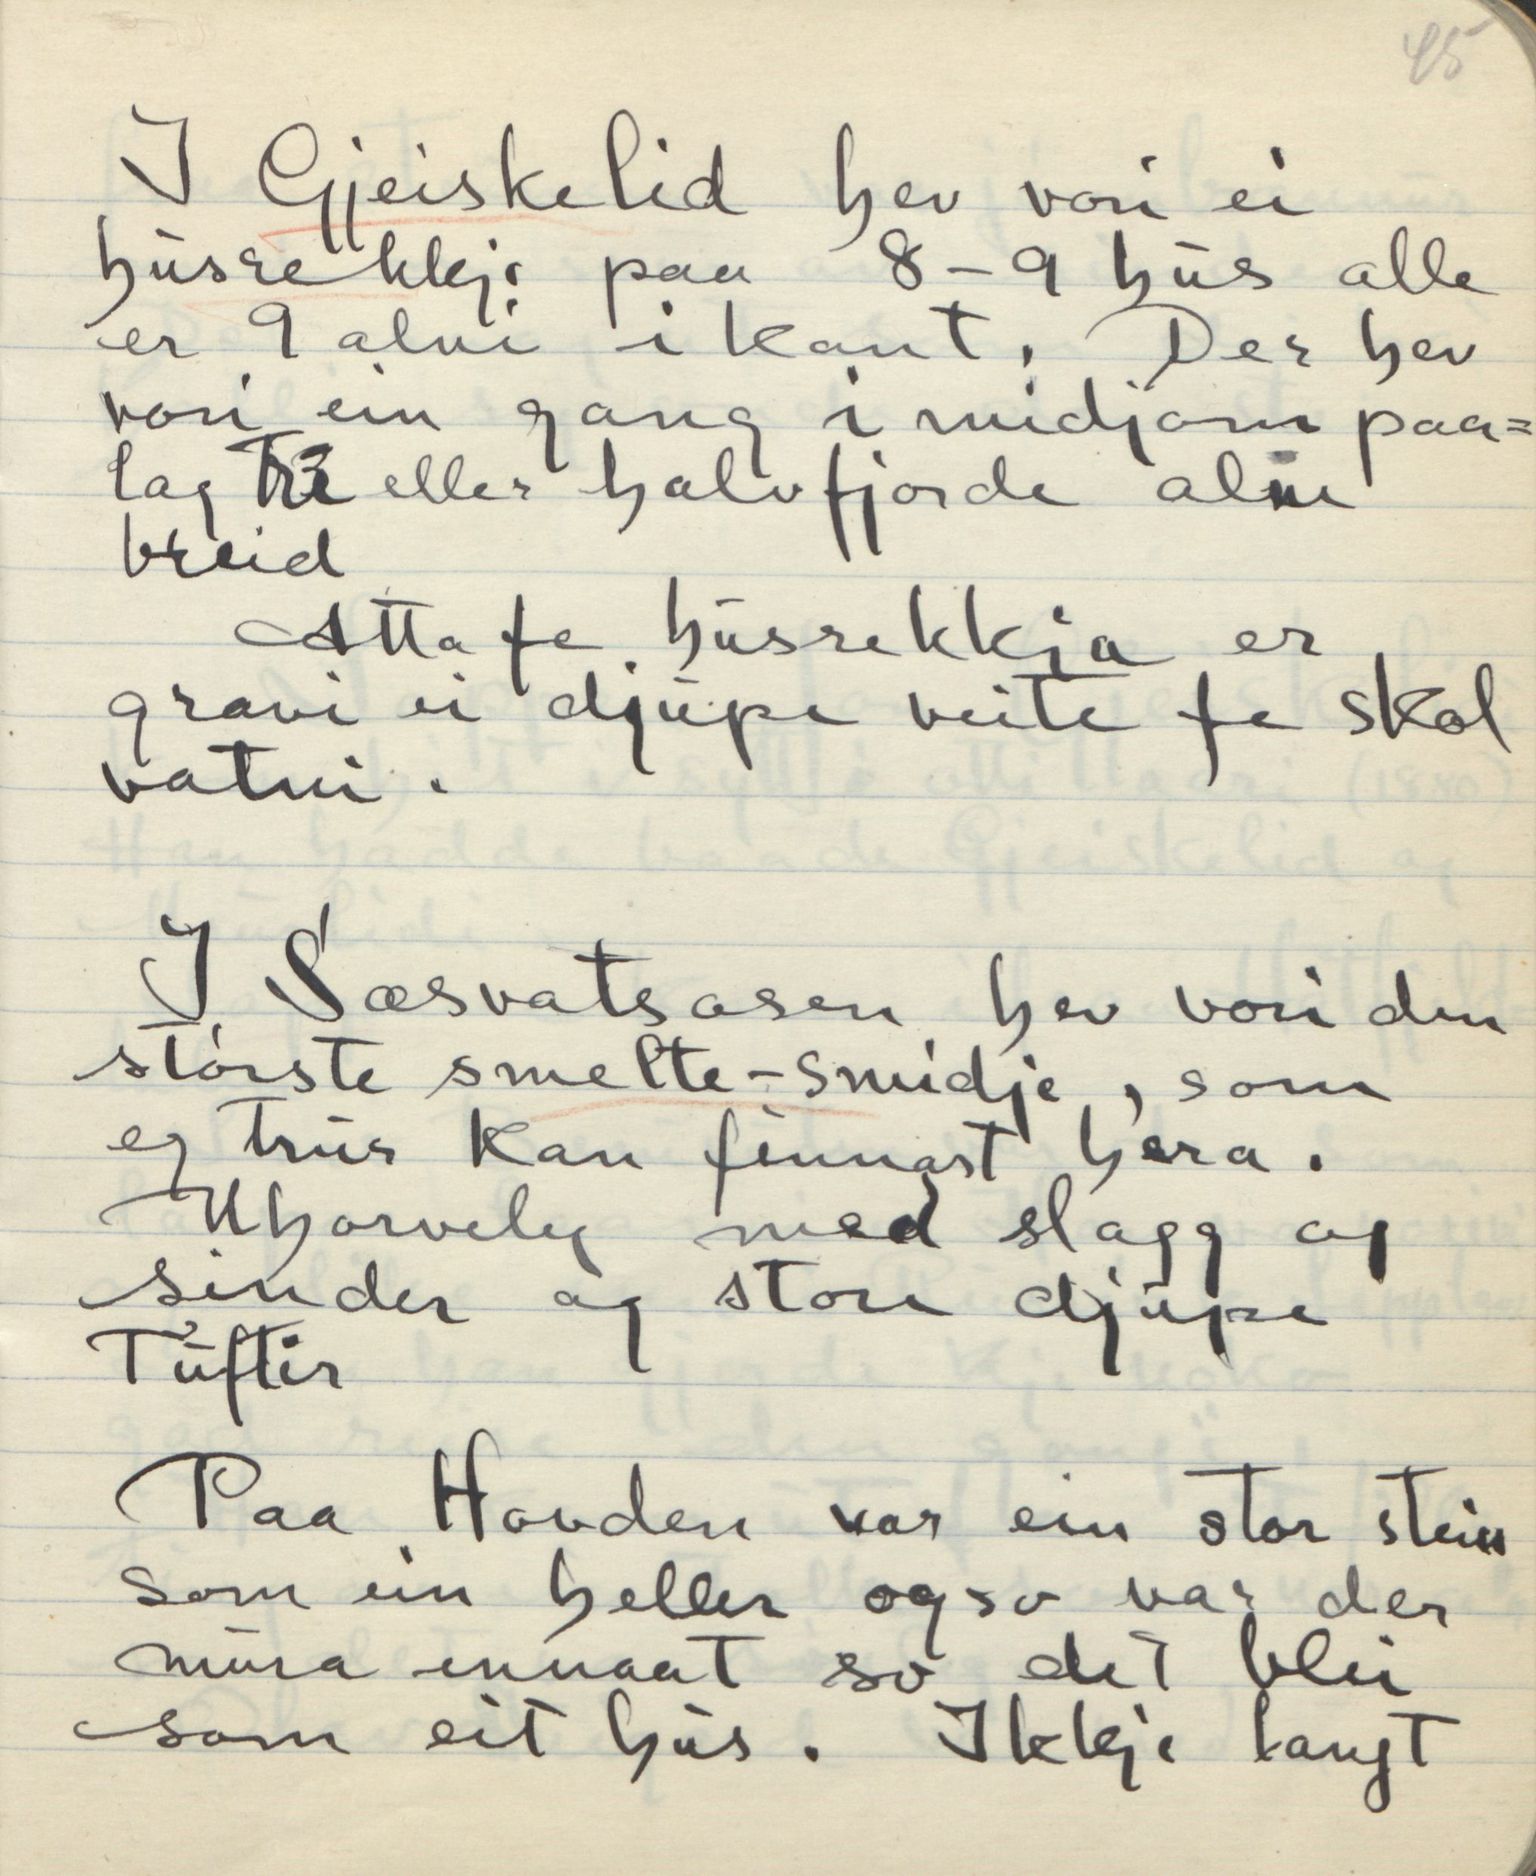 45
I Gjeiskelid hev vori ei
husrekkje paa 8-9 hus alle
er 9 alni i kant. Der hev
vori ein gang i midjom paa=
lag tri eller halvfjorde alne
breid
Atta fe husrekkja er
gravi ei djupe veite fe skol
vatni.
I Sæsvatsasen hev vori den
störste smelte-smidje, som
eg trur kan finnast hera.
Uhorveleg med slagg og
sinder og store djupe
Tufter
Paa Hovden var ein stor stein
som ein heller og so var der
mura ennaat so det blei
som eit hus. Ikkje langt